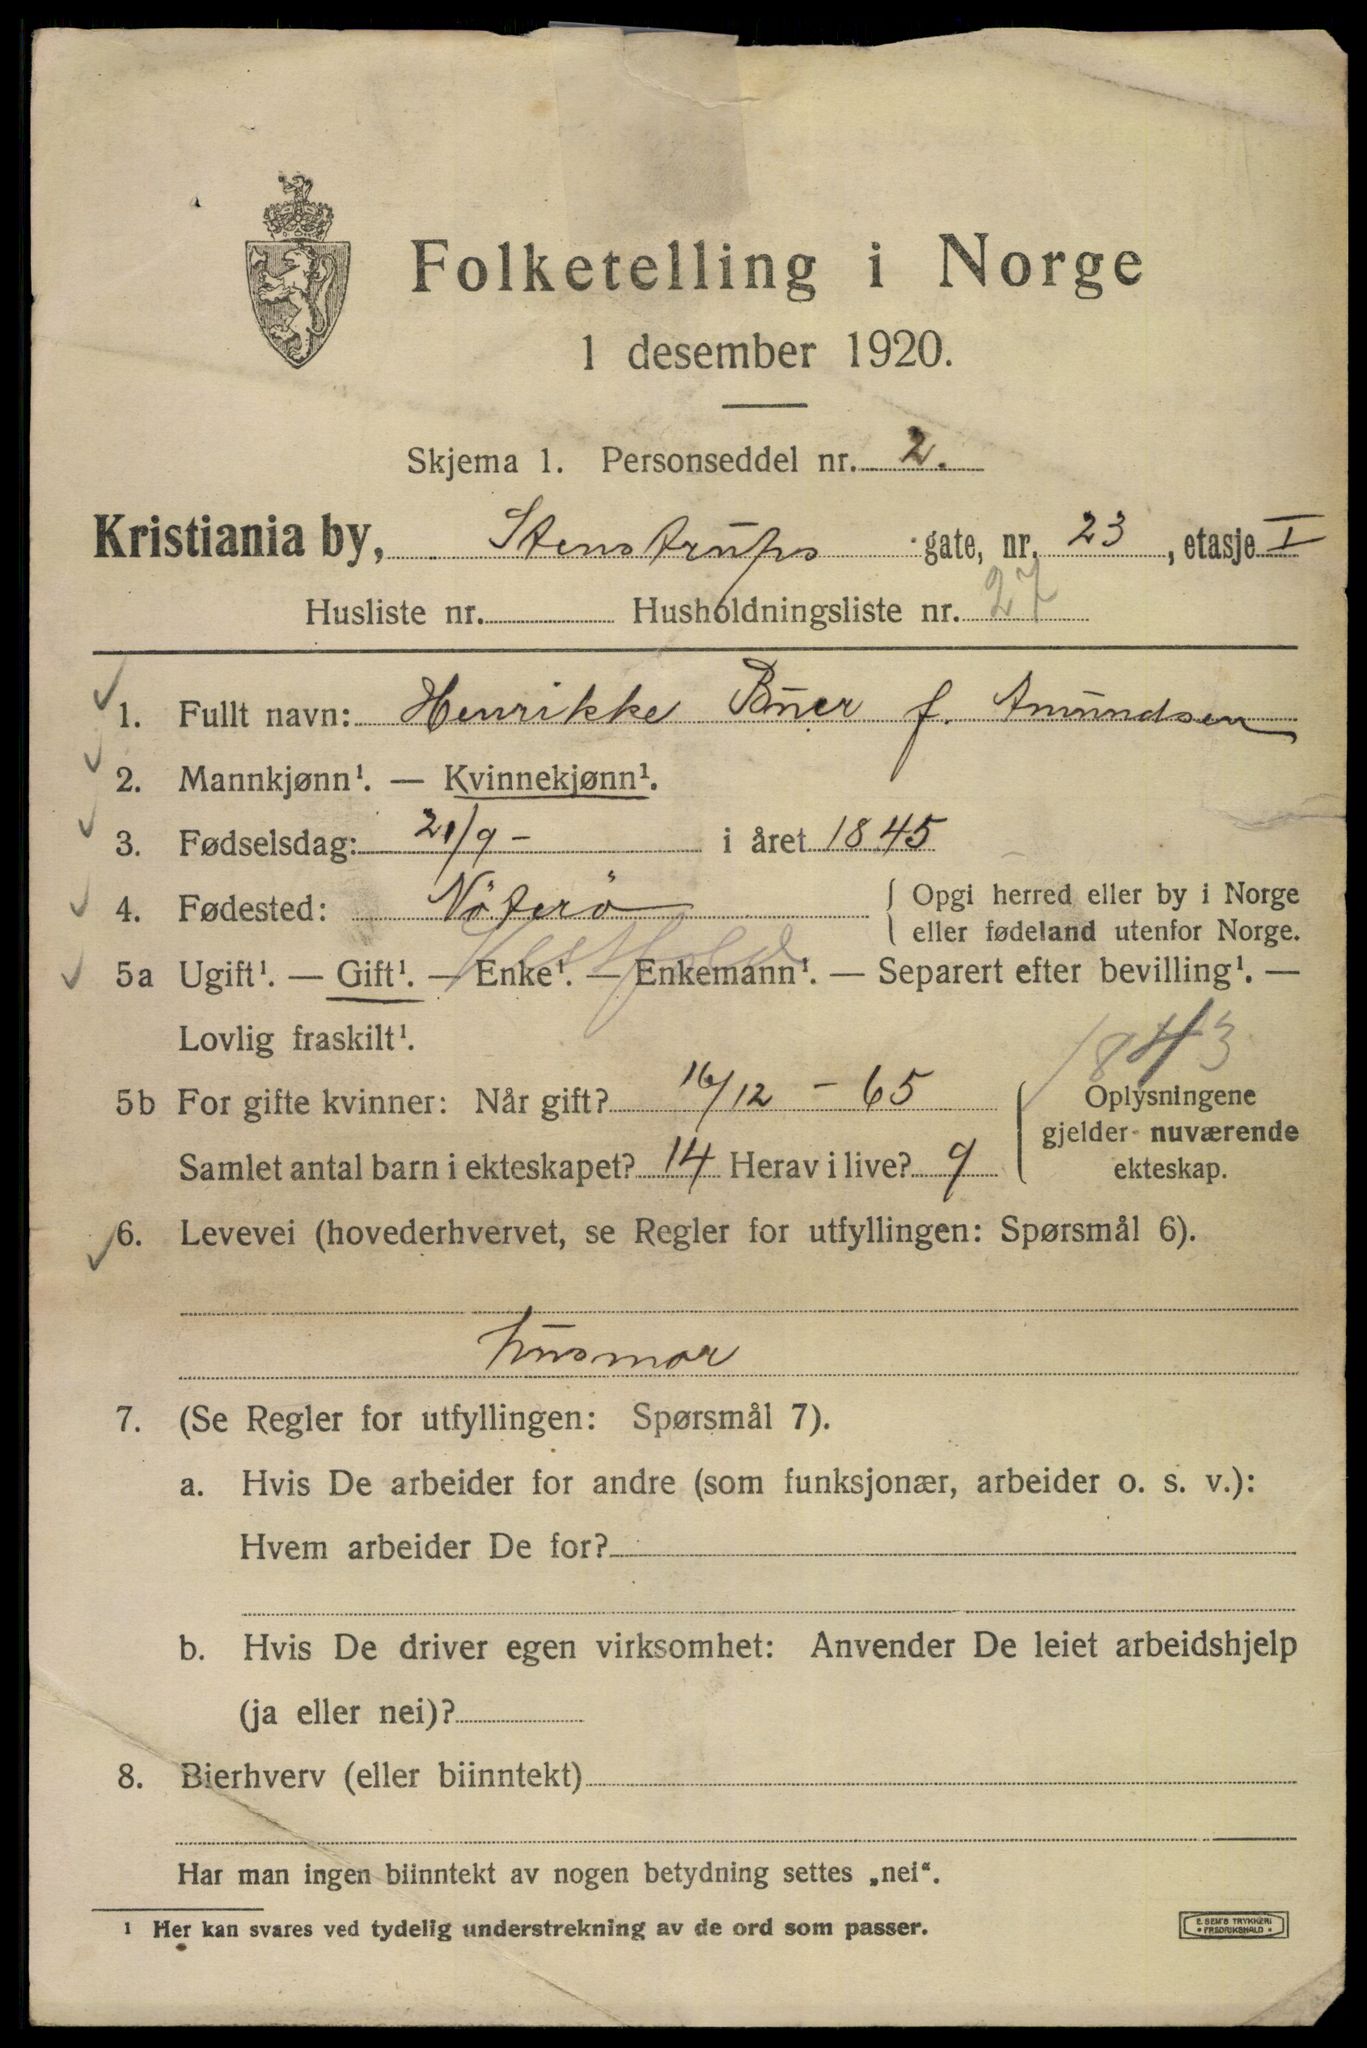 Folketelling i Norge
1 desember 1920.
Skjema 1. Personseddel nr. 2.
Kristiania by, Stenstrups gate, nr. 23, etasje I
Husliste nr. Husholdningsliste nr. 27
1. Fullt navn: Henrikke Buer f. Amundsen
2. Mannkjønn¹. — Kvinnekjønn¹.
3. Fødselsdag: 21/9 - i året 1845
4. Fødested: Nöterö { Opgi herred eller by i Norge
eller fødeland utenfor Norge.
Vestfold
5a Ugift¹. — Gift¹. — Enke¹. — Enkemann¹. — Separert efter bevilling¹. —
Lovlig fraskilt¹.
1843
5b For gifte kvinner: Når gift? 16/12 - 65 { Oplysningene
gjelder nuværende
Samlet antal barn i ekteskapet? 14 Herav i live? 9 ekteskap.
6. Levevei (hovederhvervet, se Regler for utfyllingen: Spørsmål 6).
husmor
7. (Se Regler for utfyllingen: Spørsmål 7).
a. Hvis De arbeider for andre (som funksjonær, arbeider o. s. v.):
Hvem arbeider De for?
b. Hvis De driver egen virksomhet: Anvender De leiet arbeidshjelp
(ja eller nei)?
8. Bierhverv (eller biinntekt)
Har man ingen biinntekt av nogen betydning settes „nei“.
¹ Her kan svares ved tydelig understrekning av de ord som passer.
E. SEM'S TRYKKERI
• FREDRIKSHALD •